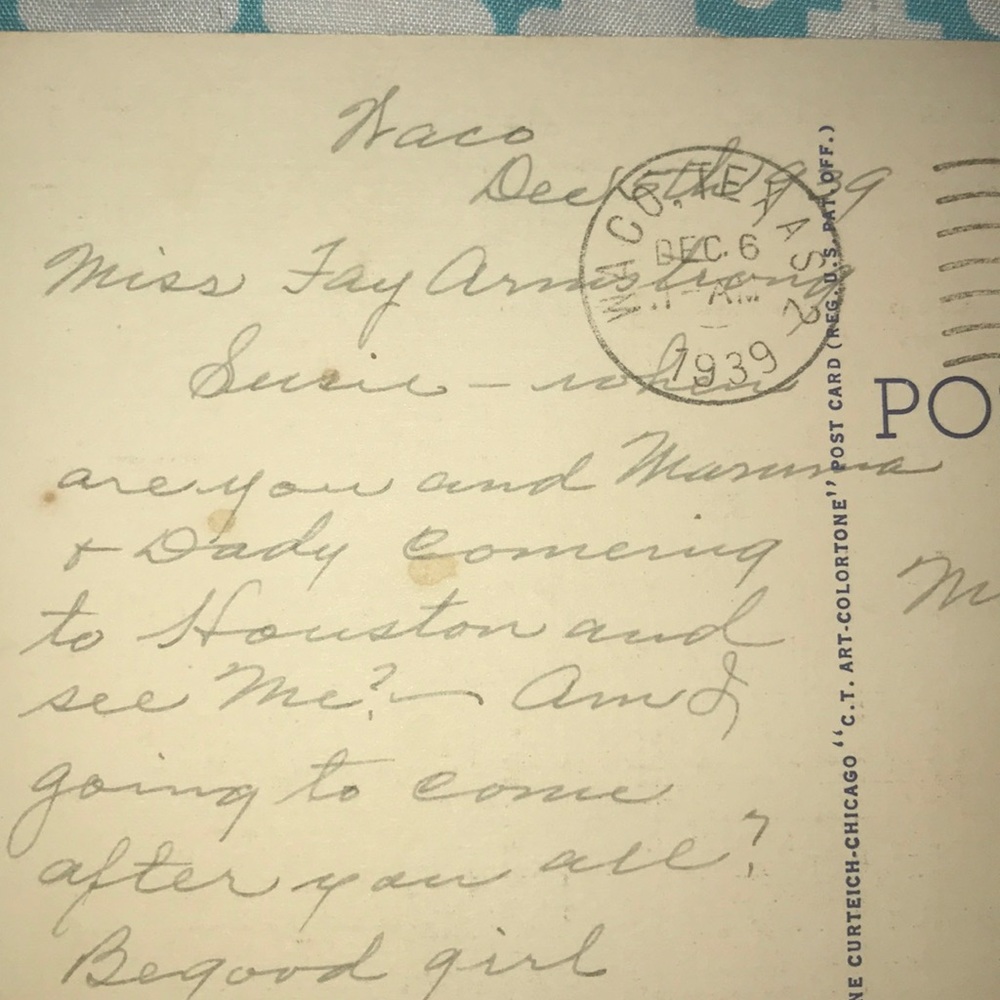 Waco
Dec 5th 1939
Miss Fay Armstrong
Susie - when
are you and Mamma
& Dady comering
to Houston and
see Me? - Am I
going to come
after you all?
Begood girl
WACO, TEXAS 2
DEC. 6
AM
1939
NE CURTEICH-CHICAGO "C.T. ART-COLORTONE" POST CARD (REG. U.S. PAT. OFF.)
PO
M